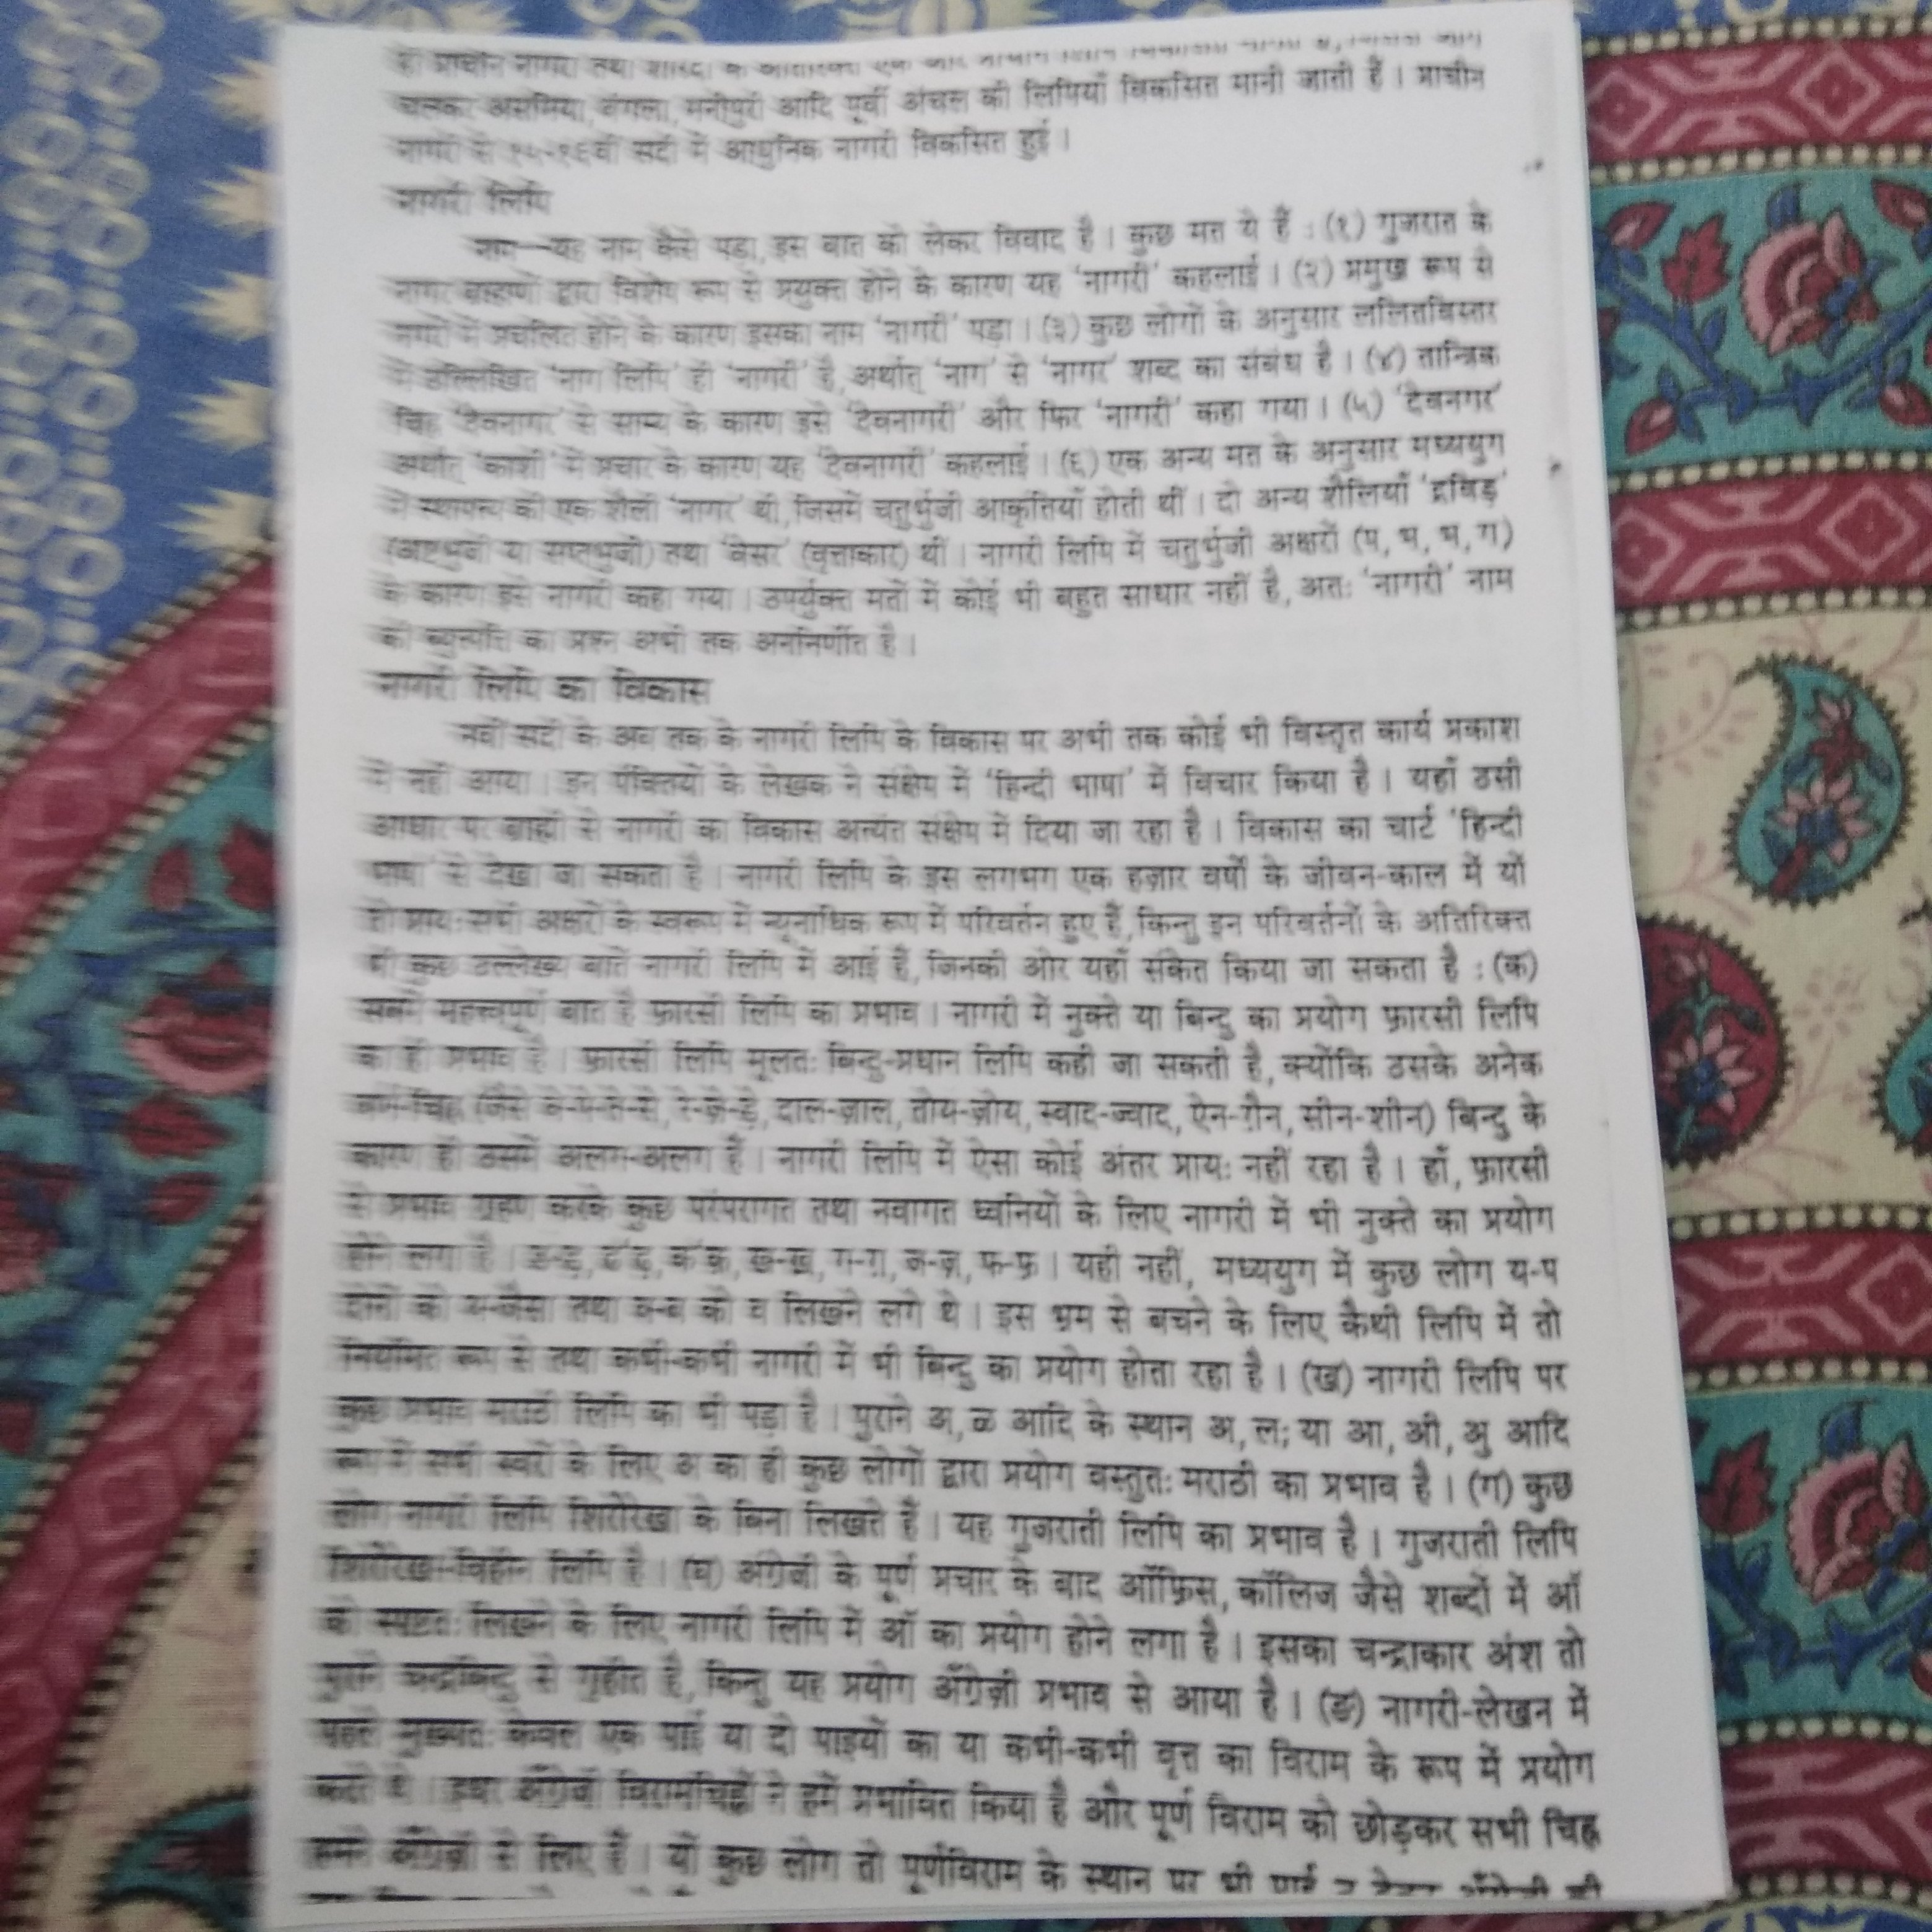 ही प्राचीन नागरी तथा शारदा के अतिरिक्त एक और प्राचीन
चलकर असमिया, बंगला, मनीपुरी आदि पूर्वी अंचल की लिपियाँ विकसित मानी जाती हैं । प्राचीन
नागरी से १५-१६वीं सदी में आधुनिक नागरी विकसित हुई ।
नागरी लिपि
नाम—यह नाम कैसे पड़ा, इस बात को लेकर विवाद है । कुछ मत ये हैं : (१) गुजरात के
नागर ब्राह्मणों द्वारा विशेष रूप से प्रयुक्त होने के कारण यह 'नागरी' कहलाई । (२) प्रमुख रूप से
नगरों में प्रचलित होने के कारण इसका नाम 'नागरी' पड़ा । (३) कुछ लोगों के अनुसार ललितविस्तार
में उल्लिखित 'नाग लिपि' ही 'नागरी' है, अर्थात् 'नाग' से 'नागर' शब्द का संबंध है । (४) तान्त्रिक
चिह्न 'देवनागर' से साम्य के कारण इसे 'देवनागरी' और फिर 'नागरी' कहा गया । (५) 'देवनगर'
अर्थात् 'काशी' में प्रचार के कारण यह 'देवनागरी' कहलाई । (६) एक अन्य मत के अनुसार मध्ययुग
में स्थापत्य की एक शैली 'नागर' थी, जिसमें चतुर्भुजी आकृतियाँ होती थीं । दो अन्य शैलियाँ 'द्रविड़'
(अष्टभुजी या सप्तभुजी) तथा 'वेसर' (वृत्ताकार) थीं । नागरी लिपि में चतुर्भुजी अक्षरों (प, भ, म, ग)
के कारण इसे नागरी कहा गया । उपर्युक्त मतों में कोई भी बहुत साधार नहीं है, अतः 'नागरी' नाम
की व्युत्पत्ति का प्रश्न अभी तक अनिर्णीत है ।
नागरी लिपि का विकास
नवीं सदी के अब तक के नागरी लिपि के विकास पर अभी तक कोई भी विस्तृत कार्य प्रकाश
में नहीं आया । इन पंक्तियों के लेखक ने संक्षेप में 'हिन्दी भाषा' में विचार किया है । यहाँ उसी
आधार पर ब्राह्मी से नागरी का विकास अत्यंत संक्षेप में दिया जा रहा है । विकास का चार्ट 'हिन्दी
भाषा' से देखा जा सकता है । नागरी लिपि के इस लगभग एक हज़ार वर्षों के जीवन-काल में यों
तो प्रायः सभी अक्षरों के स्वरूप में न्यूनाधिक रूप में परिवर्तन हुए हैं, किन्तु इन परिवर्तनों के अतिरिक्त
भी कुछ उल्लेख्य बातें नागरी लिपि में आई हैं, जिनकी ओर यहाँ संकेत किया जा सकता है : (क)
सबसे महत्त्वपूर्ण बात है फ़ारसी लिपि का प्रभाव । नागरी में नुक्ते या बिन्दु का प्रयोग फ़ारसी लिपि
का ही प्रभाव है । फ़ारसी लिपि मूलतः बिन्दु-प्रधान लिपि कही जा सकती है, क्योंकि उसके अनेक
वर्ण-चिह्न (जैसे बे-पे-ते-से, रे-ज़े-झ़े, दाल-ज़ाल, तोय-ज़ोय, स्वाद-ज्वाद, ऐन-ग़ैन, सीन-शीन) बिन्दु के
कारण ही उसमें अलग-अलग हैं । नागरी लिपि में ऐसा कोई अंतर प्रायः नहीं रहा है । हाँ, फ़ारसी
से प्रभाव ग्रहण करके कुछ परंपरागत तथा नवागत ध्वनियों के लिए नागरी में भी नुक्ते का प्रयोग
होने लगा है । ड-ड़, ढ-ढ़, क-क़, ख-ख़, ग-ग़, ज-ज़, फ-फ़ । यही नहीं, मध्ययुग में कुछ लोग य-प
दोनों को य-जैसा तथा व-ब को व लिखने लगे थे । इस भ्रम से बचने के लिए कैथी लिपि में तो
नियमित रूप से तथा कभी-कभी नागरी में भी बिन्दु का प्रयोग होता रहा है । (ख) नागरी लिपि पर
कुछ प्रभाव मराठी लिपि का भी पड़ा है । पुराने अ, ळ आदि के स्थान अ, ल; या आ, ओ, अु आदि
रूप में सभी स्वरों के लिए अ का ही कुछ लोगों द्वारा प्रयोग वस्तुतः मराठी का प्रभाव है । (ग) कुछ
लोग नागरी लिपि शिरोरेखा के बिना लिखते हैं । यह गुजराती लिपि का प्रभाव है । गुजराती लिपि
शिरोरेखा-विहीन लिपि है । (घ) अंग्रेजी के पूर्ण प्रचार के बाद ऑफ़िस, कॉलिज जैसे शब्दों में ऑ
को स्पष्टतः लिखने के लिए नागरी लिपि में ऑ का प्रयोग होने लगा है । इसका चन्द्राकार अंश तो
पुराने चन्द्रबिन्दु से गृहीत है, किन्तु यह प्रयोग अँग्रेज़ी प्रभाव से आया है । (ङ) नागरी-लेखन में
पहले मुख्यतः केवल एक पाई या दो पाइयों का या कभी-कभी वृत्त का विराम के रूप में प्रयोग
करते थे । इधर अँग्रेजी विरामचिह्नों ने हमें प्रभावित किया है और पूर्ण विराम को छोड़कर सभी चिह्न
हमने अँग्रेज़ी से लिए हैं । यों कुछ लोग तो पूर्णविराम के स्थान पर भी पाई न देकर अँग्रेजी की